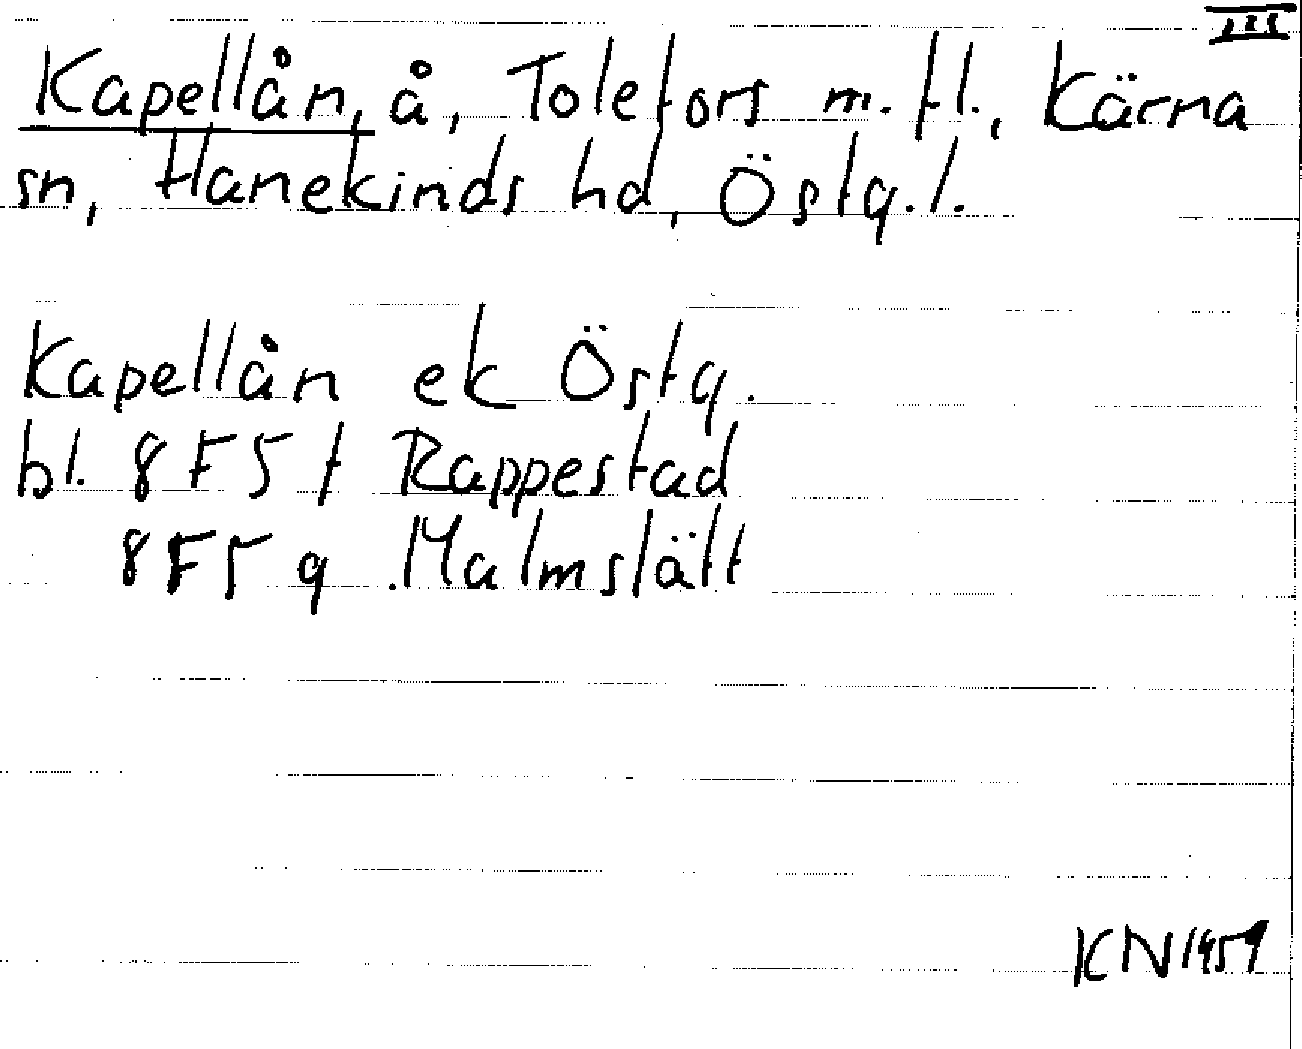 III
Kapellån, å, Tolefors m. fl., Kärna
sn, Hanekinds hd, Östg. l.
Kapellån ek Östg.
bl. 8F5 f Rappestad
8F5 g Malmslätt
KN 1959